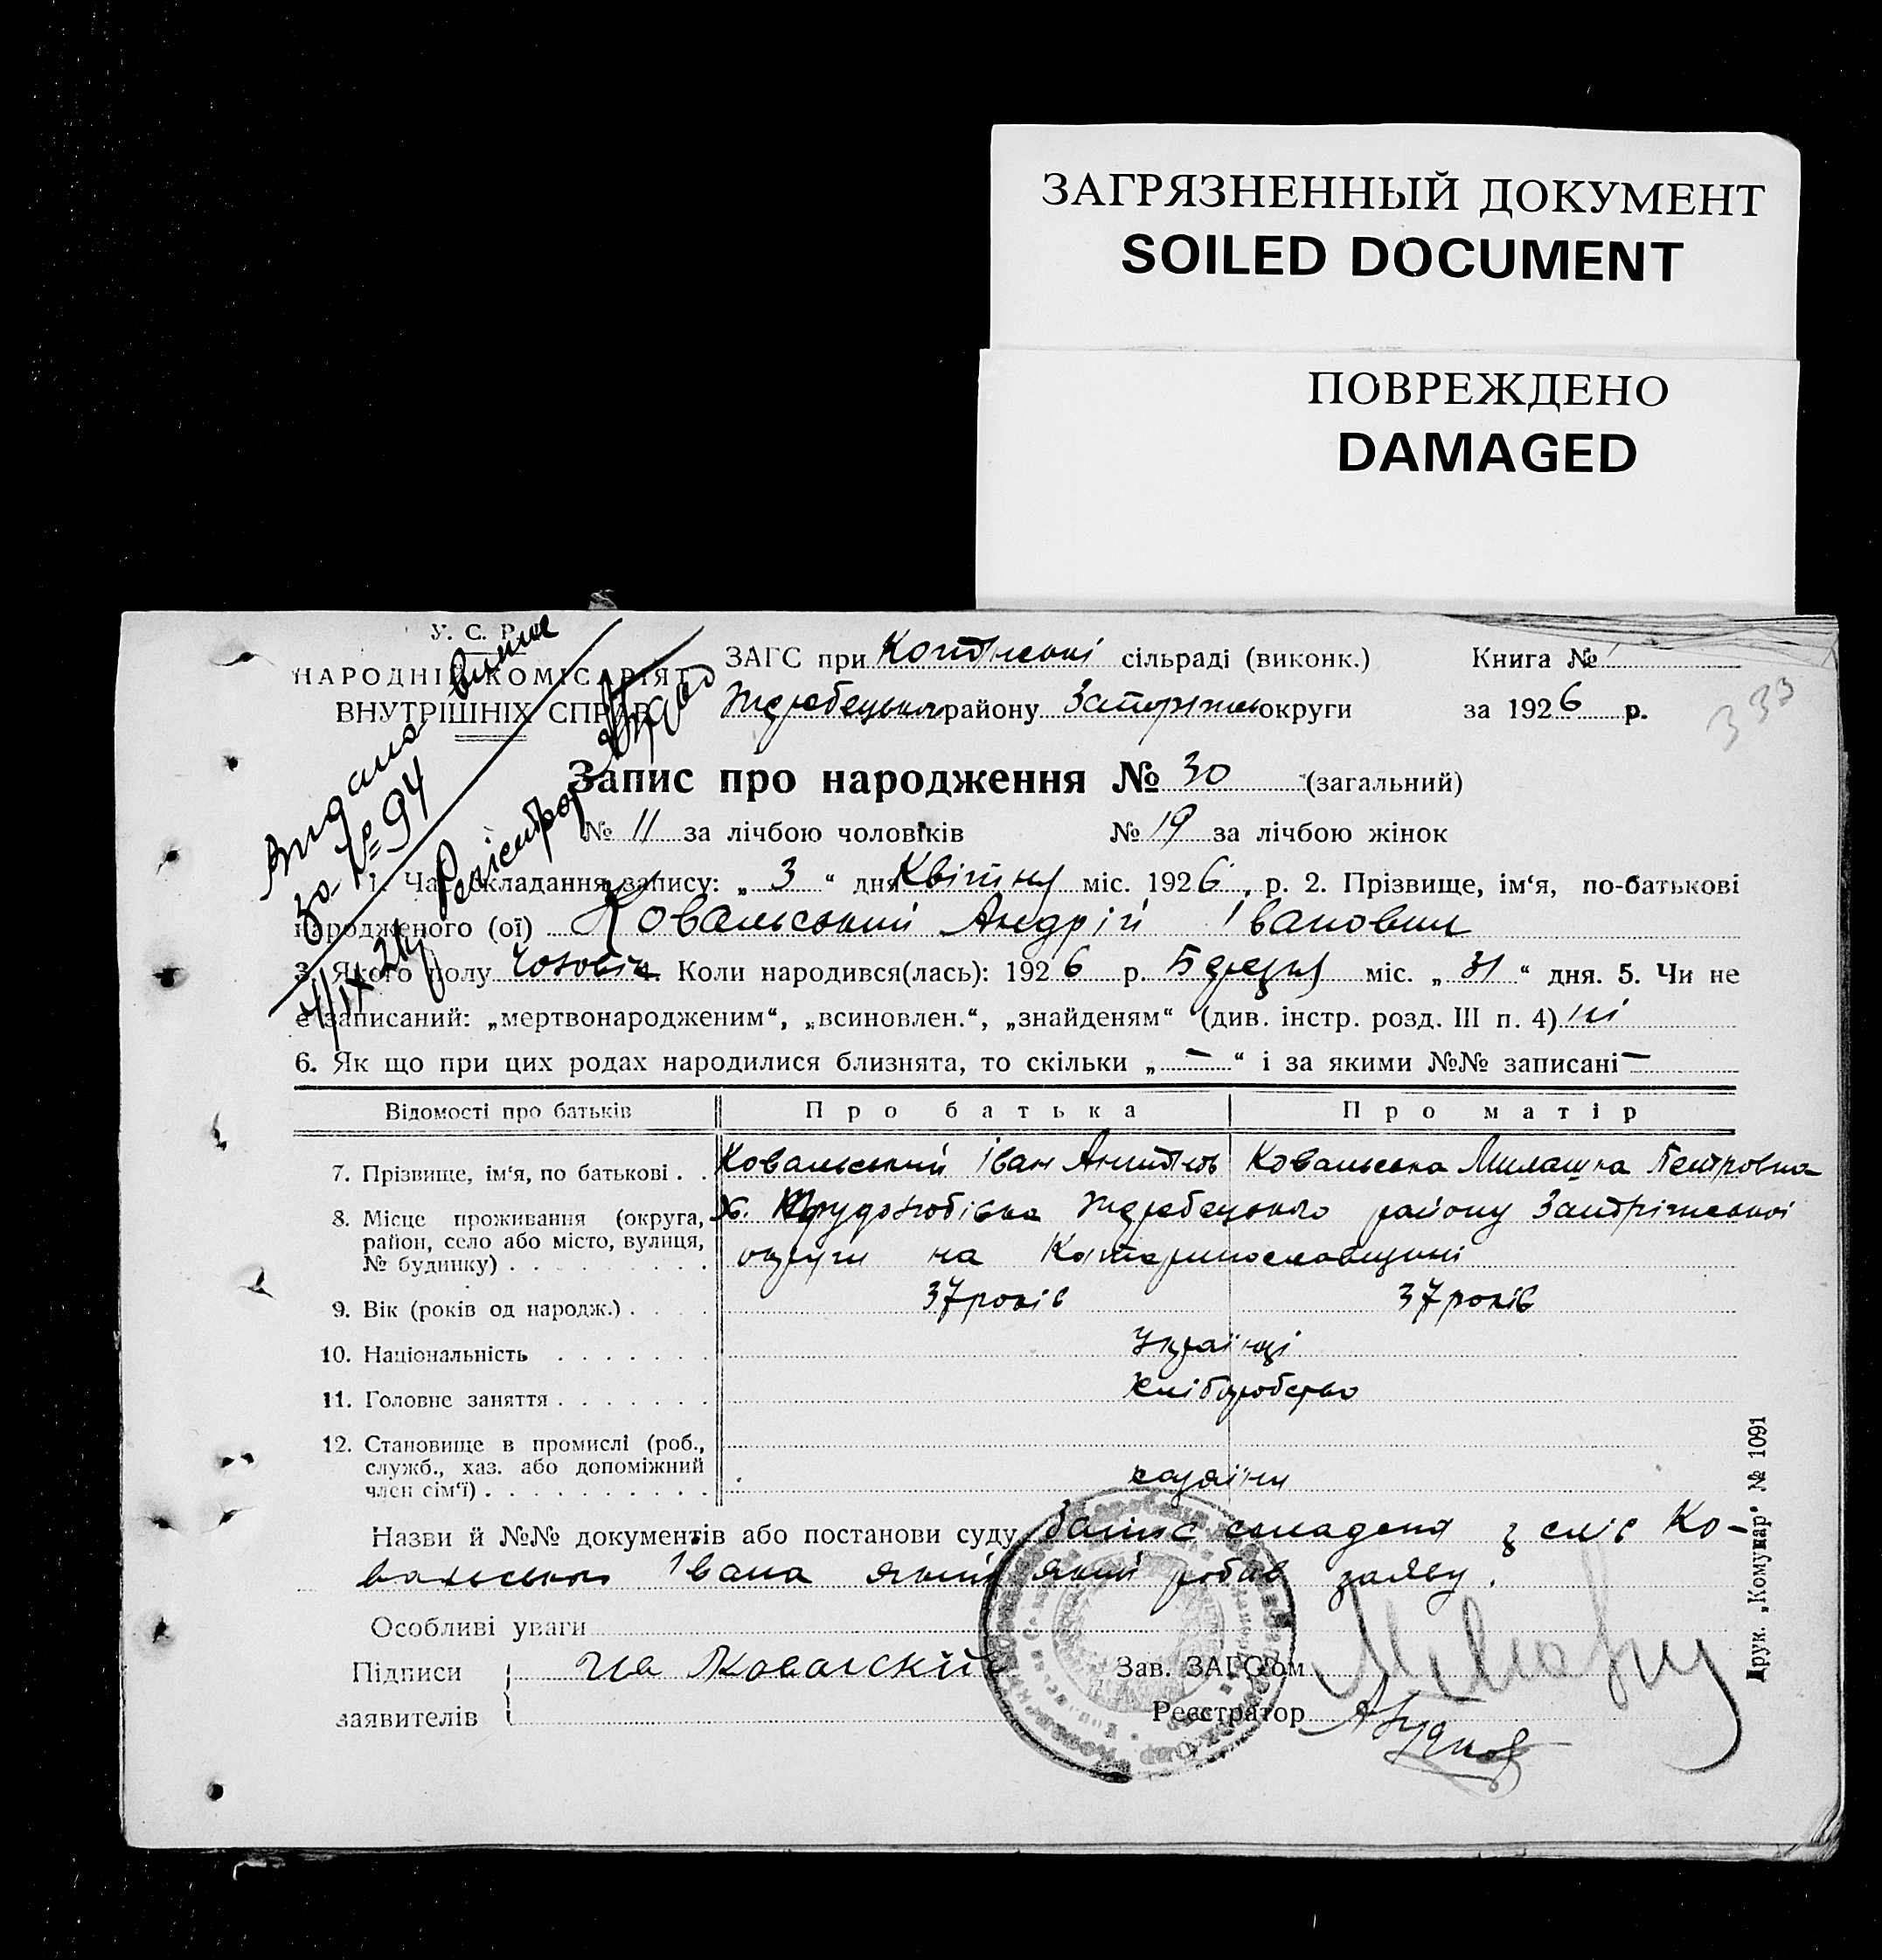 ЗАГРЯЗНЕННЫЙ ДОКУМЕНТ
SOILED DOCUMENT
ПОВРЕЖДЕНО
DAMAGED
У. С. Р. Р.
НАРОДНІЙ КОМІСАРІЯТ
ВНУТРІШНІХ СПРАВ
ЗАГС при сільраді (виконк.) Книга №
Жеребецького району Запоріжськ округи за 1926 р.
333
Видана
за № 94
Реєстратор
4/IX 26
Запис про народження № 30 (загальний)
№ 11 за лічбою чоловіків № 19 за лічбою жінок
1. Час складання запису: „ 3 “ дня Квітня міс. 1926 р. 2. Прізвище, ім‘я, по-батькові
народженого (ої) Ковальський Андрій Іванович
3. Якого полу Чоловіч 4. Коли народився(лась): 1926 р. Березня міс. „ 31 “ дня. 5. Чи не
є записаний: „мертвонародженим“, „всиновлен.“, „знайденям“ (див. інстр. розд. III п. 4) ні
6. Як що при цих родах народилися близнята, то скільки „ — “ і за якими №№ записані —
Відомості про батьків Про батька Про матір
7. Прізвище, ім‘я, по батькові . . Ковальський Іван Ковальська Милашка Петровна
8. Місце проживання (округа, район, село або місто, вулиця, № будинку) . . . . . . . . х. Трудолюбівка Жеребецького району Запоріжської
округи на Катеринославщині
9. Вік (років од народж.) . . . . 37 років 37 років
10. Національність . . . . . . . Українці
11. Головне заняття . . . . . . . хліборобство
12. Становище в промислі (роб., служб., хаз. або допоміжний член сім‘ї) . . . . . . . . . . хазяїни
Назви й №№ документів або постанови суду Запис складено з слів Ко-
вальського Івана який який робив заяву.
Особливі уваги
Підписи Ив Ковалский Зав. ЗАГС‘ом
заявителів Реєстратор
Друк. „Комунар“ № 1091